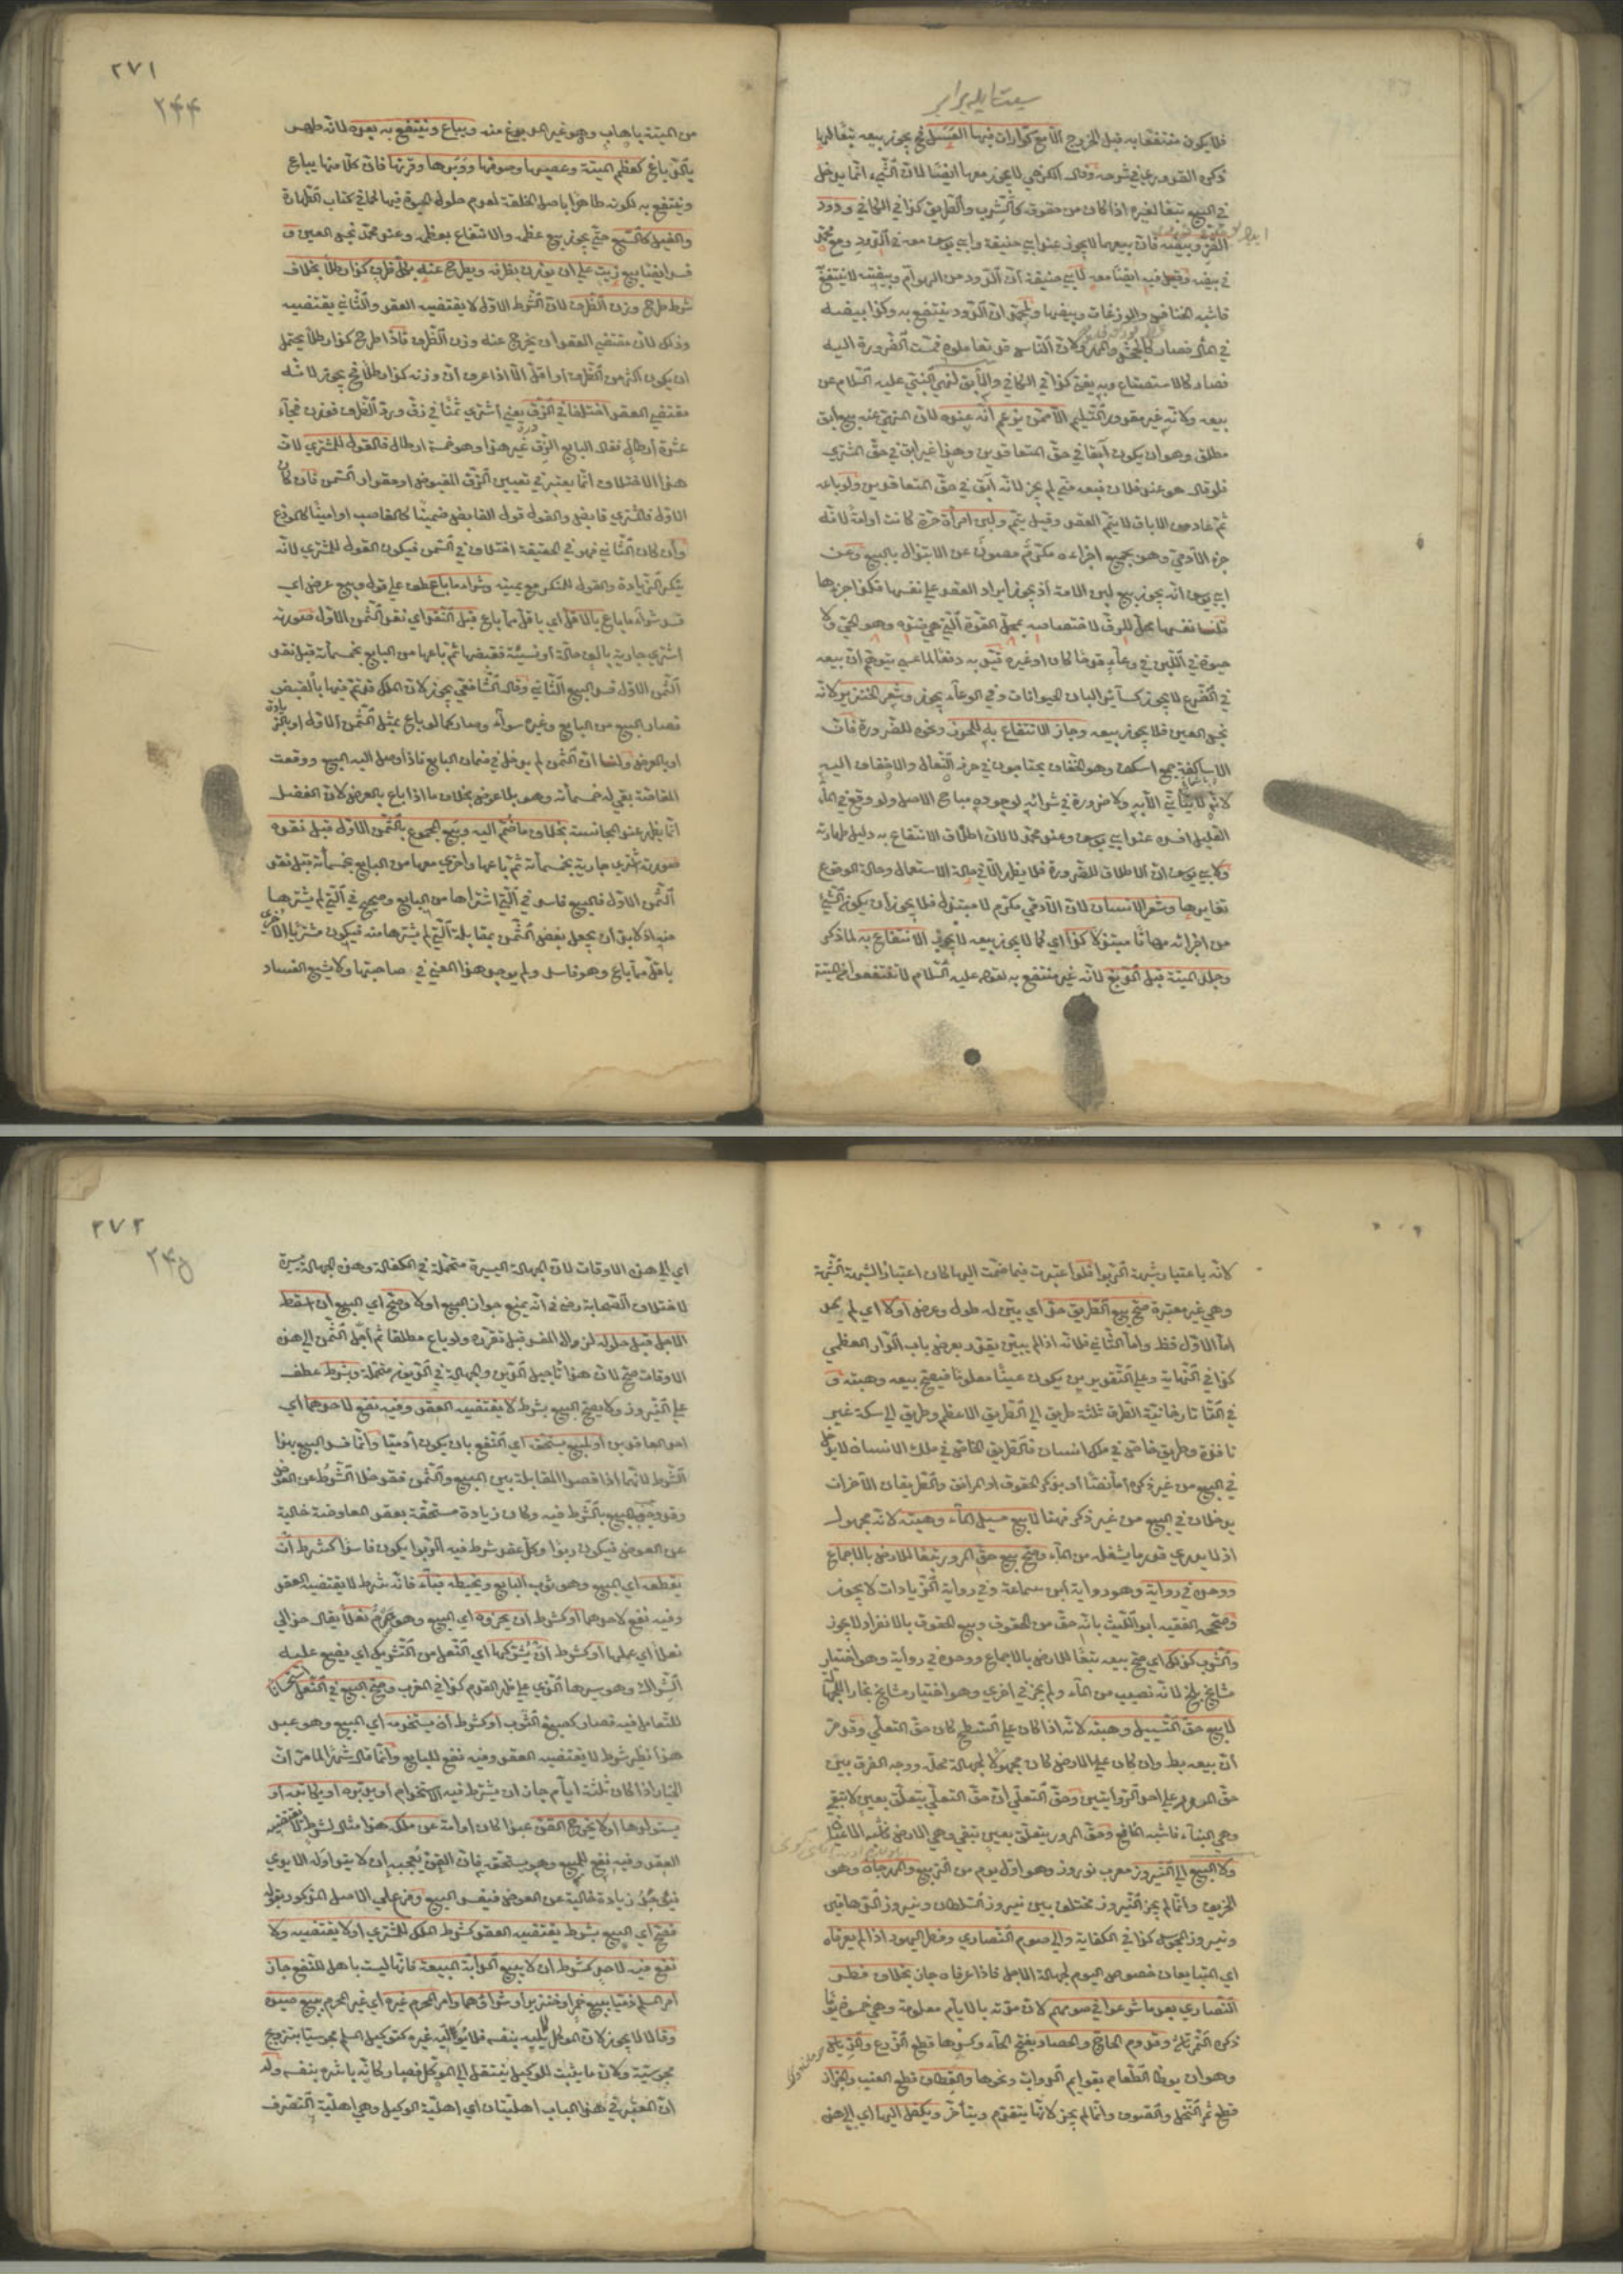 فلا يكون منتفعا به قبل الخروج الا مع كوارات فيها العسل فح يجوز بيعه تبعا لها
ذكره القدوري في شرحه وقال الكرخي لا يجوز معها ايضا لان الشيء انما يدخل
في البيع تبعا لغيره اذا كان من حقوقه كالشرب والطريق كذا في الكافي ودود
القز وبيضه فان بيعهما لا يجوز عند ابي حنيفة وابي يوسف معه في الدود ومع محمد
في بيضه وقيل فيه ايضا معه لابي حنيفة ان الدود من الهوام وبيضه لا ينتفع
فاشبه الخنافس والوزغات وبيضها ولمحمد ان الدود ينتفع به وكذا بيضه
في المآل فصار كالجحش والمهر ولان الناس قد تعاملوه فمست الضرورة اليه
فصار كالاستصناع وبه يفتى كذا في الكافي والآبق لنهي النبي عليه السلام عن
بيعه ولانه غير مقدور التسليم الا ممن يزعم انه عنده لان المنهي عنه بيع آبق
مطلق وهو ان يكون آبقا في حق المتعاقدين وهذا غير آبق في حق المشتري
فلو قال هو عند فلان فبعه مني لم يجز لانه آبق في حق المتعاقدين ولو باعه
ثم عاد من الاباق لا يتم العقد وقيل يتم ولبن امرأة حرة كانت او امة لانه
جزء الآدمي وهو بجميع اجزاءه مكرم مصون عن الابتذال بالبيع وعن
ابي يوسف انه يجوز بيع لبن الامة اذ يجوز ايراد العقد على نفسها فكذا جزءها
قلنا نفسها محل للرق لاختصاصه بمحل القوة التي هي ضده وهو الحي ولا
حيوة في اللبن في وعاء قدحا كان او غيره قيد به دفعا لما عسى يتوهم ان بيعه
في الضرع لا يجوز كسائر البان الحيوانات وفي الوعاء يجوز وشعر الخنزير لانه
نجس العين فلا يجوز بيعه وجاز الانتفاع به للخرز ونحوه للضرورة فان
الاساكفة جمع اسكف وهو الخفاف يحتاجون في خرز النعال والاخفاف اليه
لانه لا يتأتى الا به ولا ضرورة في شرائه لوجوده مباح الاصل ولو وقع في الماء
القليل افسده عند ابي يوسف وعند محمد لا لان اطلاق الانتفاع به دليل طهارته
ولابي يوسف ان الاطلاق للضرورة فلا يظهر الا في حالة الاستعمال وحالة الوقوع
تغايرها وشعر الانسان لان الآدمي مكرم لا مبتذل فلا يجوز ان يكون شيء
من اجزائه مهانا مبتذلا كذا اي كما لا يجوز بيعه لا يجوز الانتفاع به لما ذكر
وجلد الميتة قبل الدبغ لانه غير منتفع به لقوله عليه السلام لا تنتفعوا من الميتة
٢٧١
٢٤٤
من الميتة باهاب وهو غير المدبوغ منه ويباع وينتفع به بعده لانه طهر
بالدباغ كعظم الميتة وعصبها وصوفها ووبرها وقرنها فان كلا منها يباع
وينتفع به لكونه طاهرا باصل الخلقة لعدم حلول الحيوة فيها كما في كتاب الطهارة
والفيل كالسبع حتى يجوز بيع عظمه والانتفاع بعظمه وعند محمد نجس العين و
فسد ايضا بيع زيت على ان يوزن بظرفه ويطرح عنه بكل ظرف كذا رطلا بخلاف
شرط طرح وزن الظرف لان الشرط الاول لا يقتضيه العقد والثاني يقتضيه
وذلك لان مقتضى العقد ان يخرج عنه وزن الظرف فاذا طرح كذا رطلا يحتمل
ان يكون اكثر من الظرف او اقل الا اذا عرف ان وزنه كذا رطلا فح يجوز لانه
مقتضى العقد اختلفا في الزق يعني اشترى سمنا في زق ورد الظرف فوزن فجاء
عشرة ارطال فقال البايع الزق غير هذا وهو خمسة ارطال فالقول للمشتري لان
هذا الاختلاف انما يعتبر في تعيين الزق المقبوض او مقدار السمن فان كان
الاول فالمشتري قابض والقول قول القابض ضمينا كالغاصب او امينا كالمودع
وان كان الثاني فهو في الحقيقة اختلاف في الثمن فيكون القول للمشتري لانه
ينكر الزيادة والقول للمنكر مع يمينه وشراء ما باع عطف على قوله وبيع عرض اي
فسد شراء ما باع بالاقل اي باقل مما باع قبل النقد اي نقد الثمن الاول صورته
اشترى جارية بالف حالة او نسيئة فقبضها ثم باعها من البايع بخمسمائة قبل نقد
الثمن الاول فسد البيع الثاني وقال الشافعي يجوز لان الملك قد تم فيها بالقبض
فصار البيع من البايع وغيره سواء وصار كما لو باع بمثل الثمن الاول او بالزيادة
او بالعرض ولنا ان الثمن لم يدخل في ضمان البايع فاذا وصل اليه المبيع ووقعت
المقاصة بقي له خمسمائة وهو بلا عوض بخلاف ما اذا باع بالعرض لان الفضل
انما يظهر عند المجانسة بخلاف ما ضم اليه وبيع المجموع بالثمن الاول قبل نقده
صورته اشترى جارية بخمسمائة ثم باعها واخرى معها من البايع بخمسمائة قبل نقد
الثمن الاول فالبيع فاسد في التي اشتراها من البايع وصحيح في التي لم يشترها
منه اذ لا بد ان يجعل بعض الثمن بمقابلة التي لم يشترها منه فيكون مشتريا للاخرى
باقل مما باع وهو فاسد ولم يوجد هذا المعنى في صاحبتها ولا يشيع الفساد
لانه باعتبار شبهة الربوا فلو اعتبرت فيما ضمت اليها كان اعتبارا لشبهة الشبهة
وهي غير معتبرة صح بيع الطريق حد اي بين له طول وعرض او لا اي لم يحد
اما الاول فظ واما الثاني فلانه اذا لم يبين يقدر بعرض باب الدار العظمى
كذا في النهاية وعلى التقديرين يكون عينا معلوما فيصح بيعه وهبته و
في التاتارخانية الطرق ثلثة طريق الى الطريق الاعظم وطريق الى سكة غير
نافذة وطريق خاص في ملك انسان فالطريق الخاص في ملك الانسان لا يدخل
في البيع من غير ذكره اما نصا او بذكر الحقوق او المرافق والطريقان الآخران
يدخلان في البيع من غير ذكرهما لا بيع مسيل الماء وهبته لانه مجهول
اذ لا يدري قدر ما يشغله من الماء وصح بيع حق المرور تبعا للارض بالاجماع
ووحده في رواية وهو رواية ابن سماعة وفي رواية الزيادات لا يجوز
وصححه الفقيه ابو الليث بانه حق من الحقوق وبيع الحقوق بالانفراد لا يجوز
والشرب كذلك اي صح بيعه تبعا للارض بالاجماع ووحده في رواية وهو اختيار
مشايخ بلخ لانه نصيب من الماء ولم يجز في اخرى وهو اختيار مشايخ بخارا للجهالة
لا بيع حق التسييل وهبته لانه اذا كان على السطح كان حق التعلي وقد مر
ان بيعه بط وان كان على الارض كان مجهولا لجهالة محله ووجه الفرق بين
حق المرور على احد الروايتين وحق التعلي ان حق التعلي يتعلق بعين لا تبقى
وهي البناء فاشبه المنافع وحق المرور يتعلق بعين تبقى وهي الارض فاشبه الاعيان
ولا البيع الى النيروز معرب نوروز وهو اول يوم من الربيع والمهرجان وهو
الخريف وانما لم يجز النيروز مختلف بين نيروز السلطان ونيروز الدهاقين
ونيروز المجوس كذا في الكفاية والى صوم النصارى وفطر اليهود اذا لم يعرفاه
اي المتبايعان خصوص اليوم لجهالة الاجل فاذا عرفاه جاز بخلاف فطر
النصارى بعد ما شرعوا في صومهم لان مدته بالايام معلومة وهي خمسون يوما
ذكره التمرتاشي وقدوم الحاج والحصاد بفتح الحاء وكسرها قطع الزرع والدياس
وهو ان يوطأ الطعام بقوايم الدواب ونحوها والقطاف قطع العنب والجزاز
قطع ثمر النخل والصوف وانما لم يجز لانها يتقدم ويتأخر ويكفل اليها اي الى هذه
٢٧٢
٢٤٥
اي الى هذه الاوقات لان الجهالة اليسيرة متحملة في الكفالة وهذه الجهالة يسيرة
لاختلاف الصحابة رض في انه يمنع جواز البيع او لا وصح اي البيع ان اسقط
الاجل قبل حلوله لزوال المفسد قبل تقرره ولو باع مطلقا ثم اجل الثمن الى هذه
الاوقات صح لان هذا تاجيل الدين والجهالة في الديون متحملة وبشرط عطف
على النيروز ولا يصح البيع بشرط لا يقتضيه العقد وفيه نفع لاحدهما اي
احد العاقدين او لمبيع يستحق اي النفع بان يكون آدميا وانما فسد البيع بهذا
الشرط لانهما اذا قصدا المقابلة بين المبيع والثمن فقد خلا الشرط عن العوض
وقد وجب البيع بالشرط فيه وكان زيادة مستحقة بعقد المعاوضة خالية
عن العوض فيكون ربوا وكل عقد شرط فيه الربوا يكون فاسدا كشرط ان
يقطعه اي المبيع وهو ثوب البايع ويخيطه قباء فانه شرط لا يقتضيه العقد
وفيه نفع لاحدهما او كشرط ان يحذوه اي المبيع وهو صرم نعلا يقال حذا لي
نعلا اي عملها او كشرط ان يشركها اي النعل من التشريك اي يضع عليه
الشراك وهو سيرها الذي على ظهر القدم كذا في المغرب وصح البيع في النعل استحسانا
للتعامل فيه فصار كصبغ الثوب او كشرط ان يستخدمه اي المبيع وهو عبد
هذا نظير شرط لا يقتضيه العقد وفيه نفع للبايع وانما قال شهرا لما مر ان
الخيار اذا كان ثلثة ايام جاز ان يشترط فيه الاستخدام او يدبره او يكاتبه او
يستولدها او لا يخرج القن عبدا كان او امة عن ملكه هذا مثال لشرط لا يقتضيه
العقد وفيه نفع للمبيع وهو يستحقه فان القن يعجبه ان لا يتداوله الايدي
فيكون زيادة خالية عن العوض فيفسد البيع وفرع على الاصل المذكور بقوله
فيصح اي البيع بشرط يقتضيه العقد كشرط الملك للمشتري او لا يقتضيه ولا
نفع فيه لاحد كشرط ان لا يبيع الدابة المبيعة فانها ليست باهل للنفع جاز
امر المسلم ذميا ببيع خمر او خنزير او شرائهما وامر المحرم غيره اي غير المحرم ببيع صيده
وقالا لا يجوز لان الموكل لا يليه بنفسه فلا يوليه غيره كتوكيل المسلم مجوسيا بتزويج
مجوسية ولان ما يثبت للوكيل ينتقل الى الموكل فصار كانه باشره بنفسه وله
ان المعتبر في هذا الباب اهليتان اي اهلية الوكيل وهي اهلية التصرف